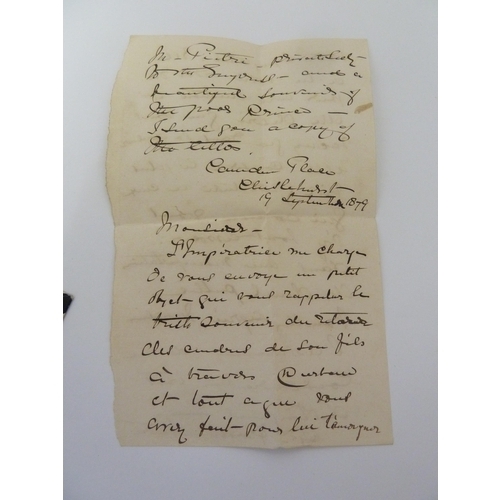 M. Pietri – private Secty
to the Empress – and a
beautiful souvenir of
the poor Prince –
I send you a copy of
the letter.
Camden Place
Chislehurst
19 September 1879
Monsieur –
L'Impératrice me charge
de vous envoyer un petit
objet qui vous rappeler le
triste souvenir du retour
des cendres de son fils
à travers Durban
et tout ce que vous
avez fait pour lui témoigner